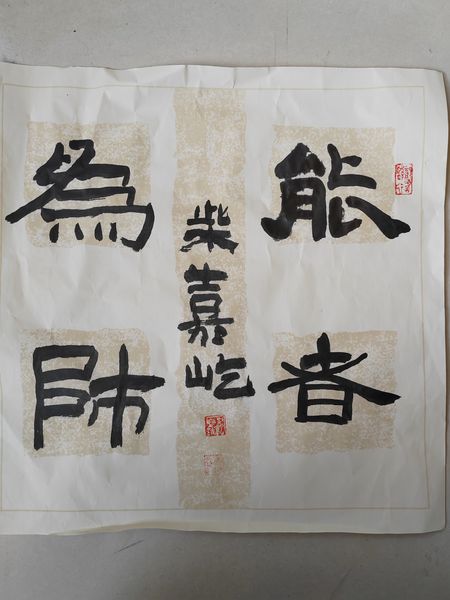 能者
為師
柴嘉屹